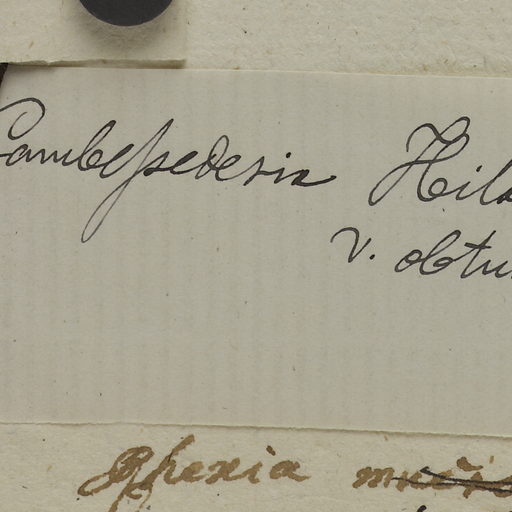 Cambessedesia Hila
v. obtu
Rhexia